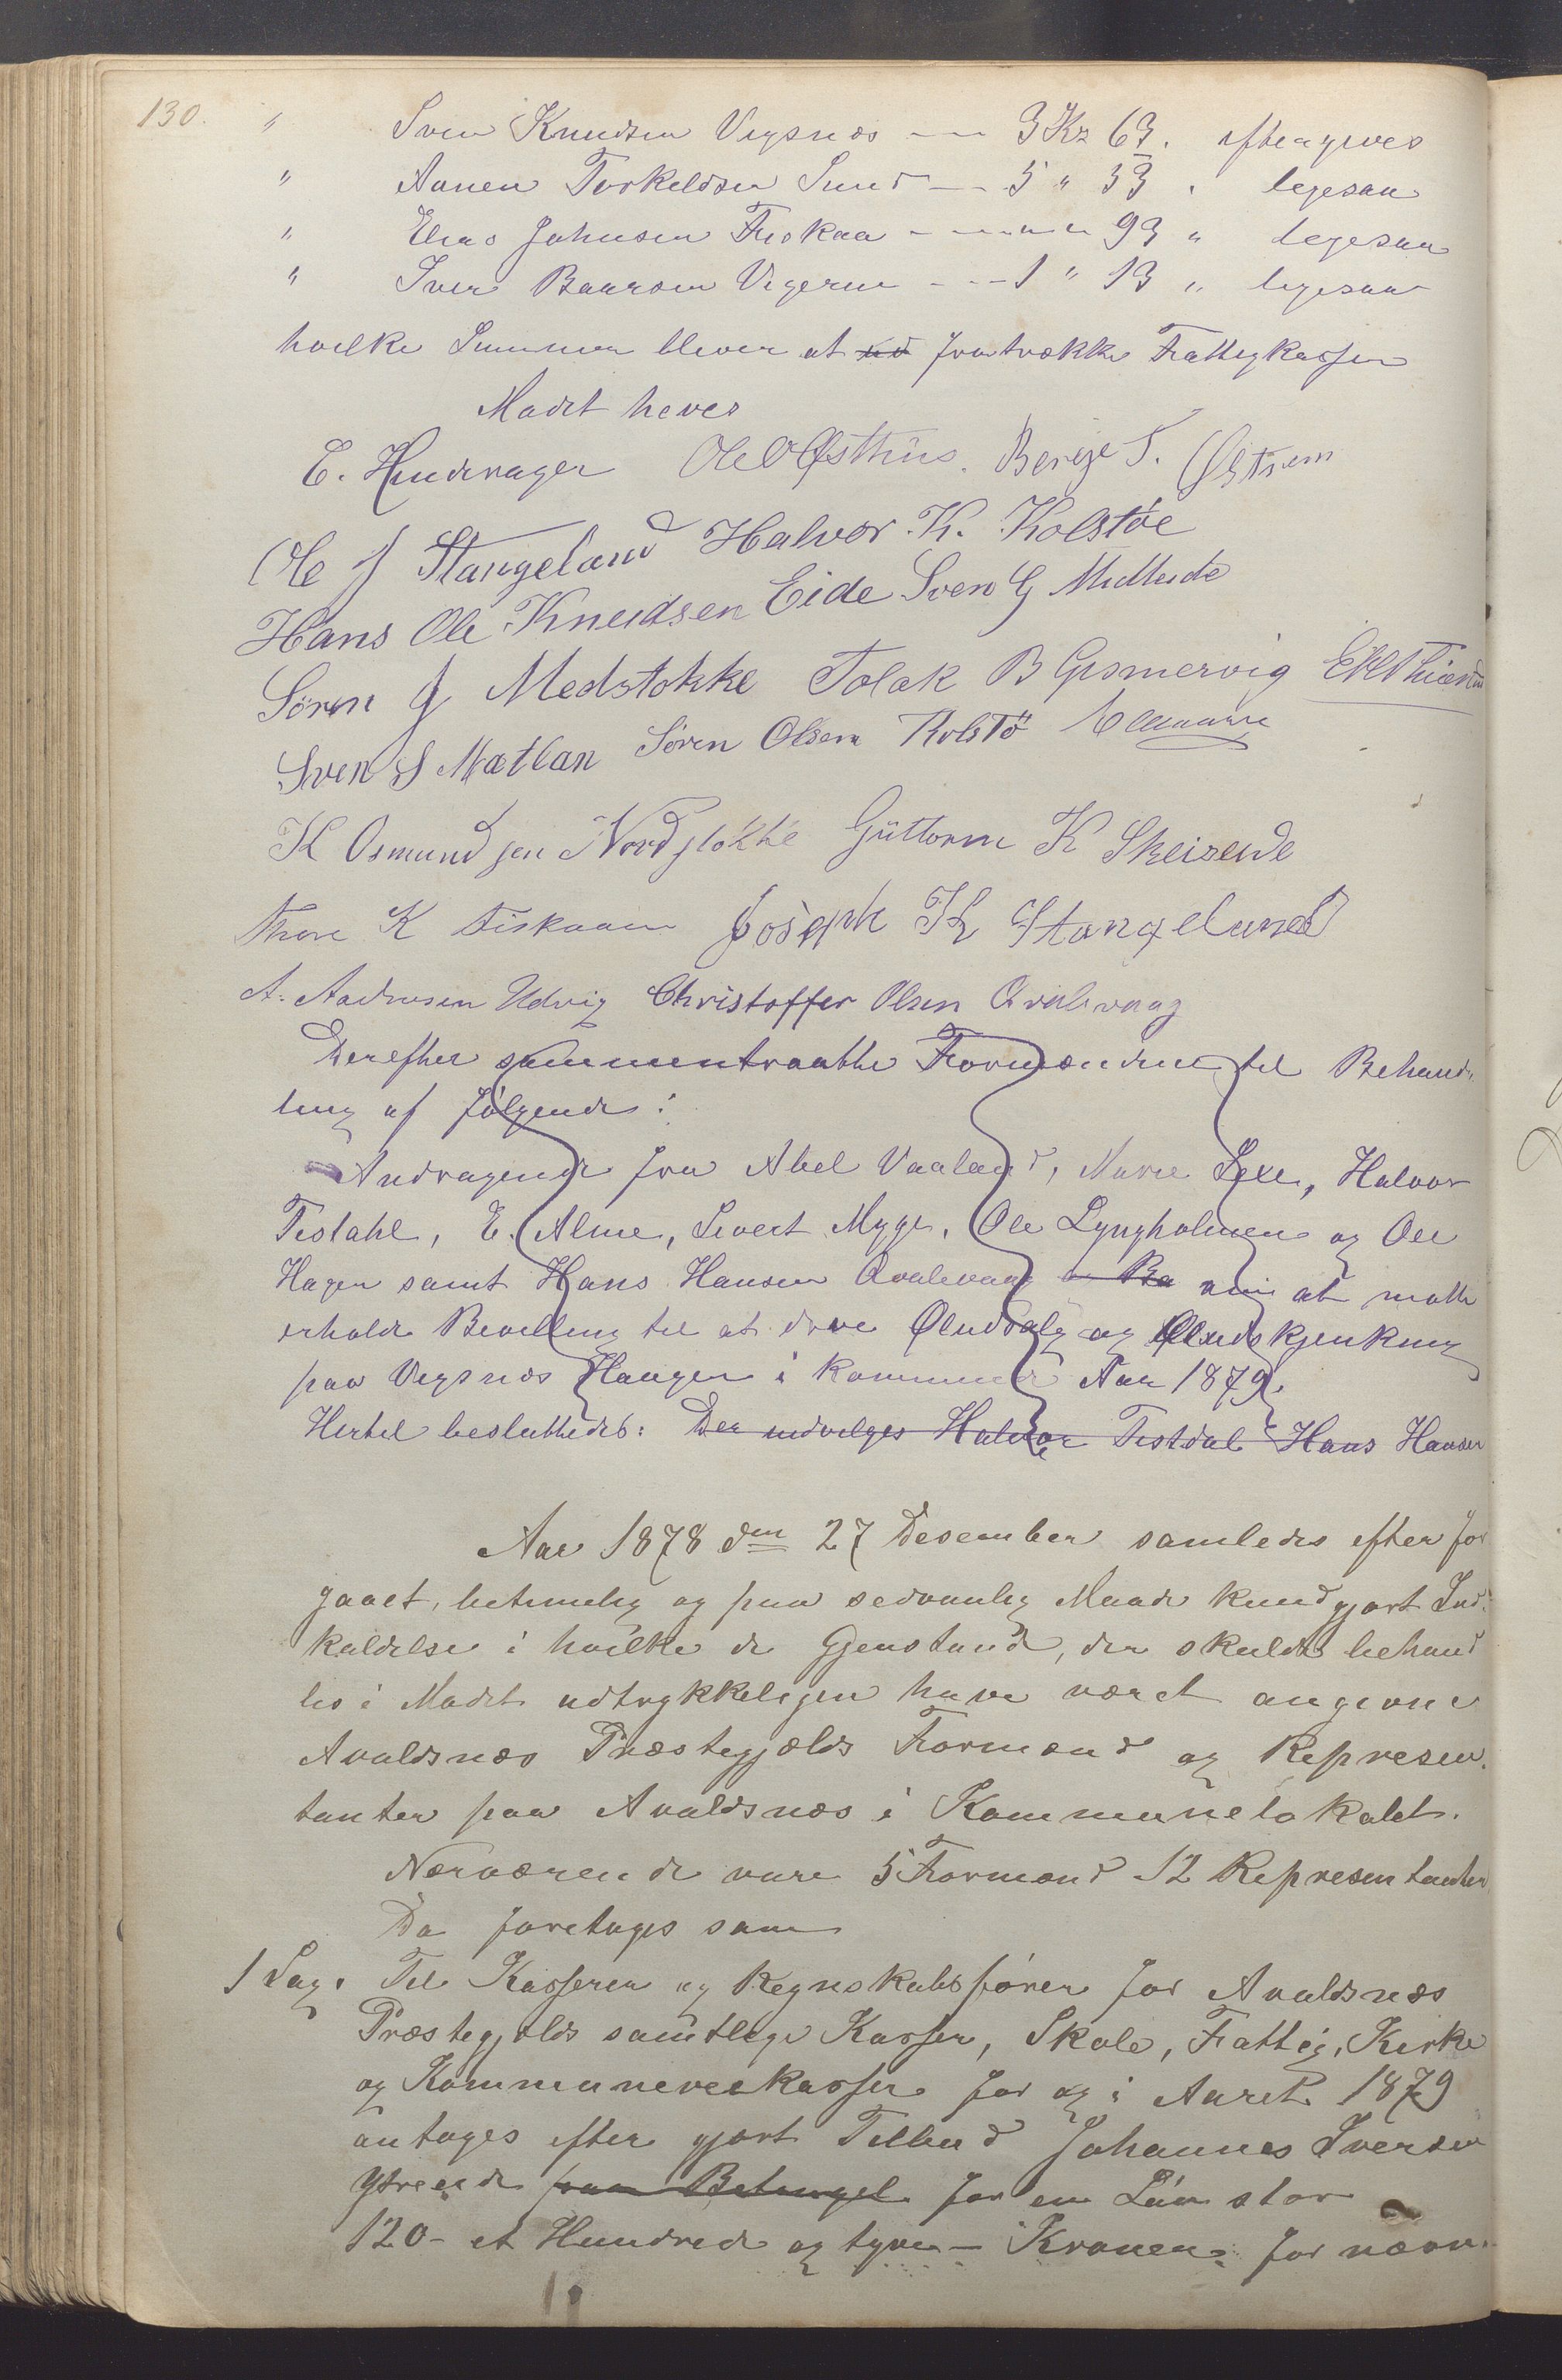 130.
" Sven Knudsen Vigsnæs — 3 Kr 63. eftergives
" Aanen Torkeldsen Sund — 5 " 53. ligesaa
" Elias Johnsen Fiskaa — " 93 " ligesaa
" Iver Baarsen Vigerne — 1 " 13 " ligesaa
hvilke Summer bliver at fratrække Fattigkassen
Mødet hevet
E. Hinderager Ole O Østhüs. Berge T. Østrem
Ole J Stangeland Halvor K. Kolstøe
Hans Ole Knudsen Eide Sven G Midteide
Sören J Medstokke Tolak B Gismervig
Sven S Mætlan Sören Olsen Kolstö
K Osmundsen Nordstokke Güttorm K Skeiseide
Thore K Fiskaaen Joseph K Stangeland
A. Andresen Udvig Christoffer Olsen Qvalevaag
Derefter sammentraatte Formændene til Behand-
ling af følgende:
Andragende fra Abel Vaaland, Halvor
Tistahl, E. Alme, Sivert Mygt, Ole Lyngholmen og Ole
Hagen samt Hans Hansen Qvalevaag om at maatte
erholde Bevilling til at drive Øludsalg og Øludskjenkning
paa Vigsnæs Haugen i kommende Aar 1879.
Hertil besluttedes: Der udvelges Halvor Tistdal Hans Hansen
Aar 1878 den 27 Desember samledes efter for
gaaet, betimelig og paa sedvanlig Maade kundgjort Ind-
kaldelse i hvilke de Gjenstande, der skulde behand
les i Mødet udtrykkeligen have været angivne
Avaldsnæs Præstegjælds Formænd og Represen-
tanter paa Avaldsnæs i Kommunelokalet.
Nærværende vare 5 Formænd 12 Representanter
Da foretoges som
1 Sag. Til Kasserer og Regnskabsfører for Avaldsnæs
Præstegjælds samtlige Kasser, Skole, Fattig, Kirke
og Kommuneveikasser for og i Aaret 1879
antages efter gjort Tilbud Johannes Iversen
Ytreeide paa Betingel for en Løn stor
120 - et Hundrede og tyve - Kroner. for nævn-